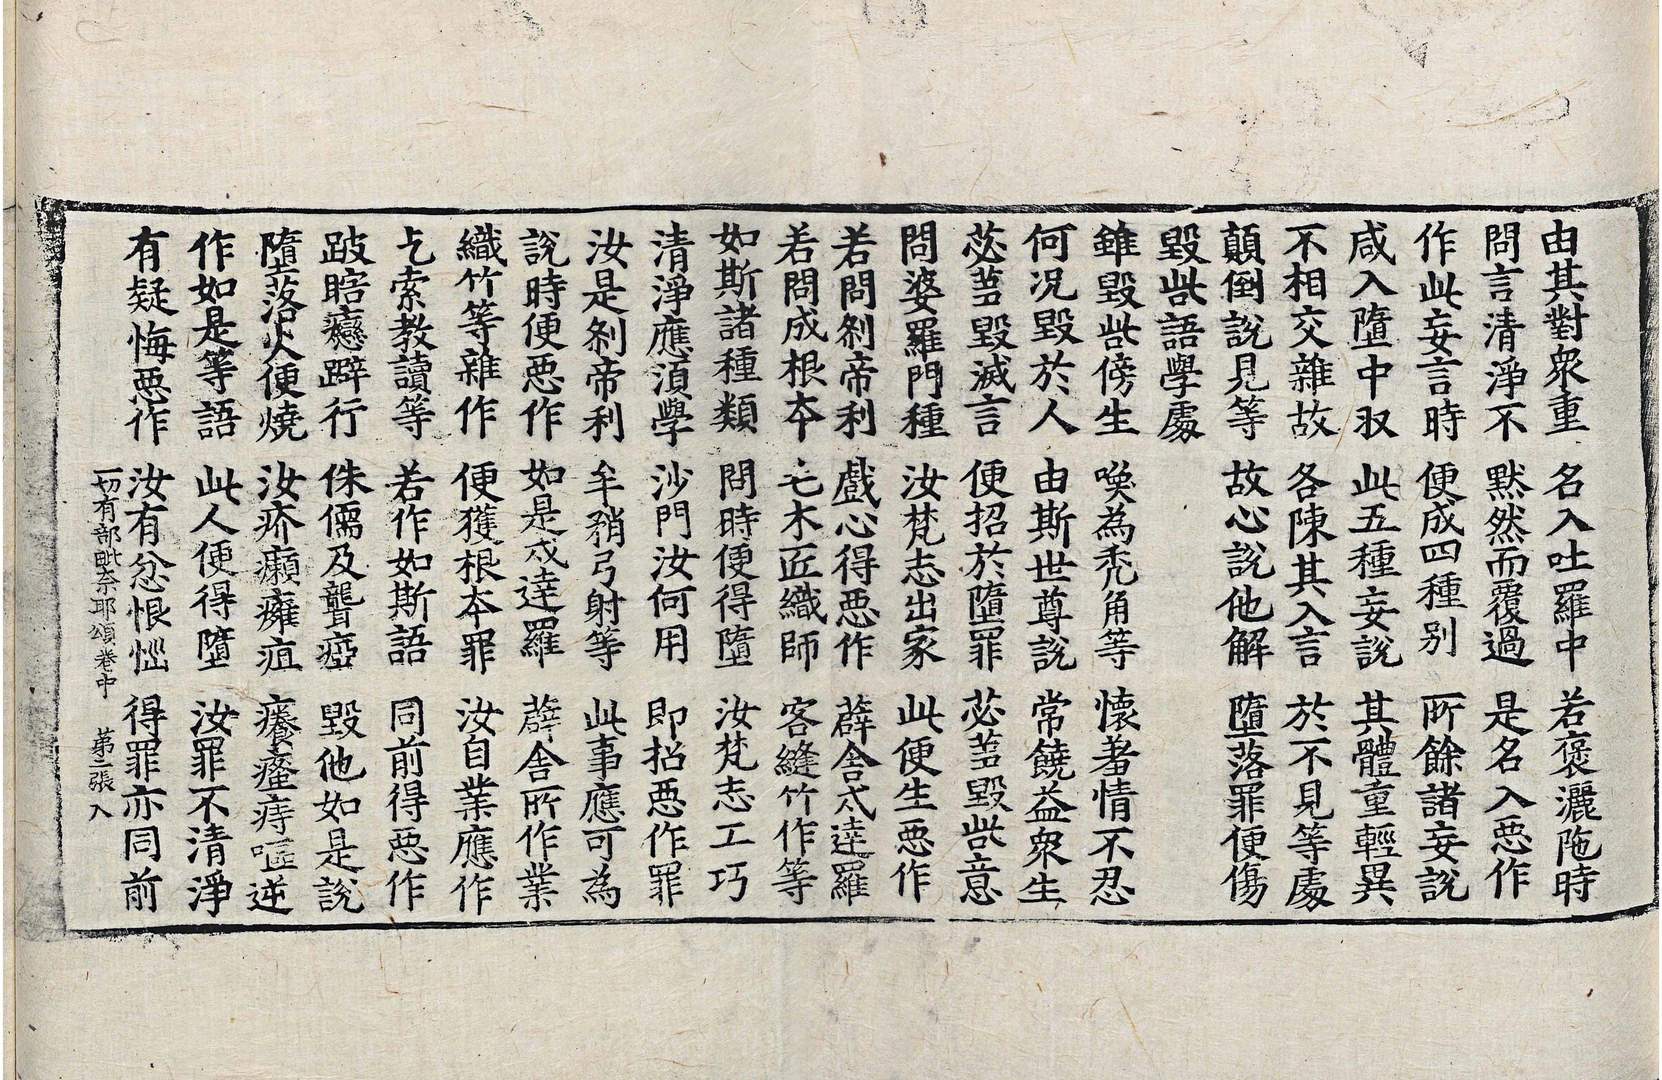 由其對眾重 名入吐羅中 若褒灑陁時
問言清淨不 默然而覆過 是名入惡作
作此妄言時 便成四種別 所餘諸妄説
咸入墮中収 此五種妄説 其體重輕異
不相交雜故 各陳其入言 於不見等處
顛倒説見等 故心説他解 墮落罪便傷
毀呰語學處
雖毀呰傍生 喚為禿角等 懷羞情不忍
何況毀於人 由斯世尊説 常饒益眾生
苾芻毀滅言 便招於墮罪 苾芻毀呰意
問婆羅門種 汝梵志出家 此便生惡作
若問剎帝利 戲心得惡作 薜舍戍達羅
若問成根本 毛木匠織師 客縫竹作等
如斯諸種類 問時便得墮 汝梵志工巧
清淨應湏學 沙門汝何用 即招惡作罪
汝是剎帝利 牟矟弓射等 此事應可為
説時便惡作 如是戍達羅 薜舍所作業
織竹等雜作 便獲根本罪 汝自業應作
乞索教讀等 若作如斯語 同前得惡作
跛瞎癭躃行 侏儒及聾瘂 毀他如是説
墮落火便燒 汝疥癩癰疽 癢瘙痔嘔逆
作如是等語 此人便得墮 汝罪不清淨
有疑悔惡作 汝有忿恨惱 得罪亦同前
一切有部毗奈耶頌卷中 第二張 入